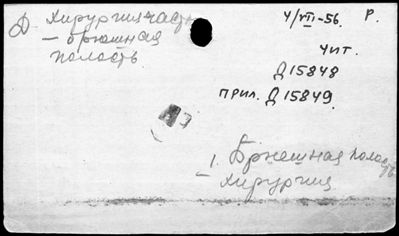 Д. Хирургия част.
— брюшная
полость
4/VII-56. Р.
Чит.
Д 15848
прил. Д 15849
1. Брюшная полость
— хирургия